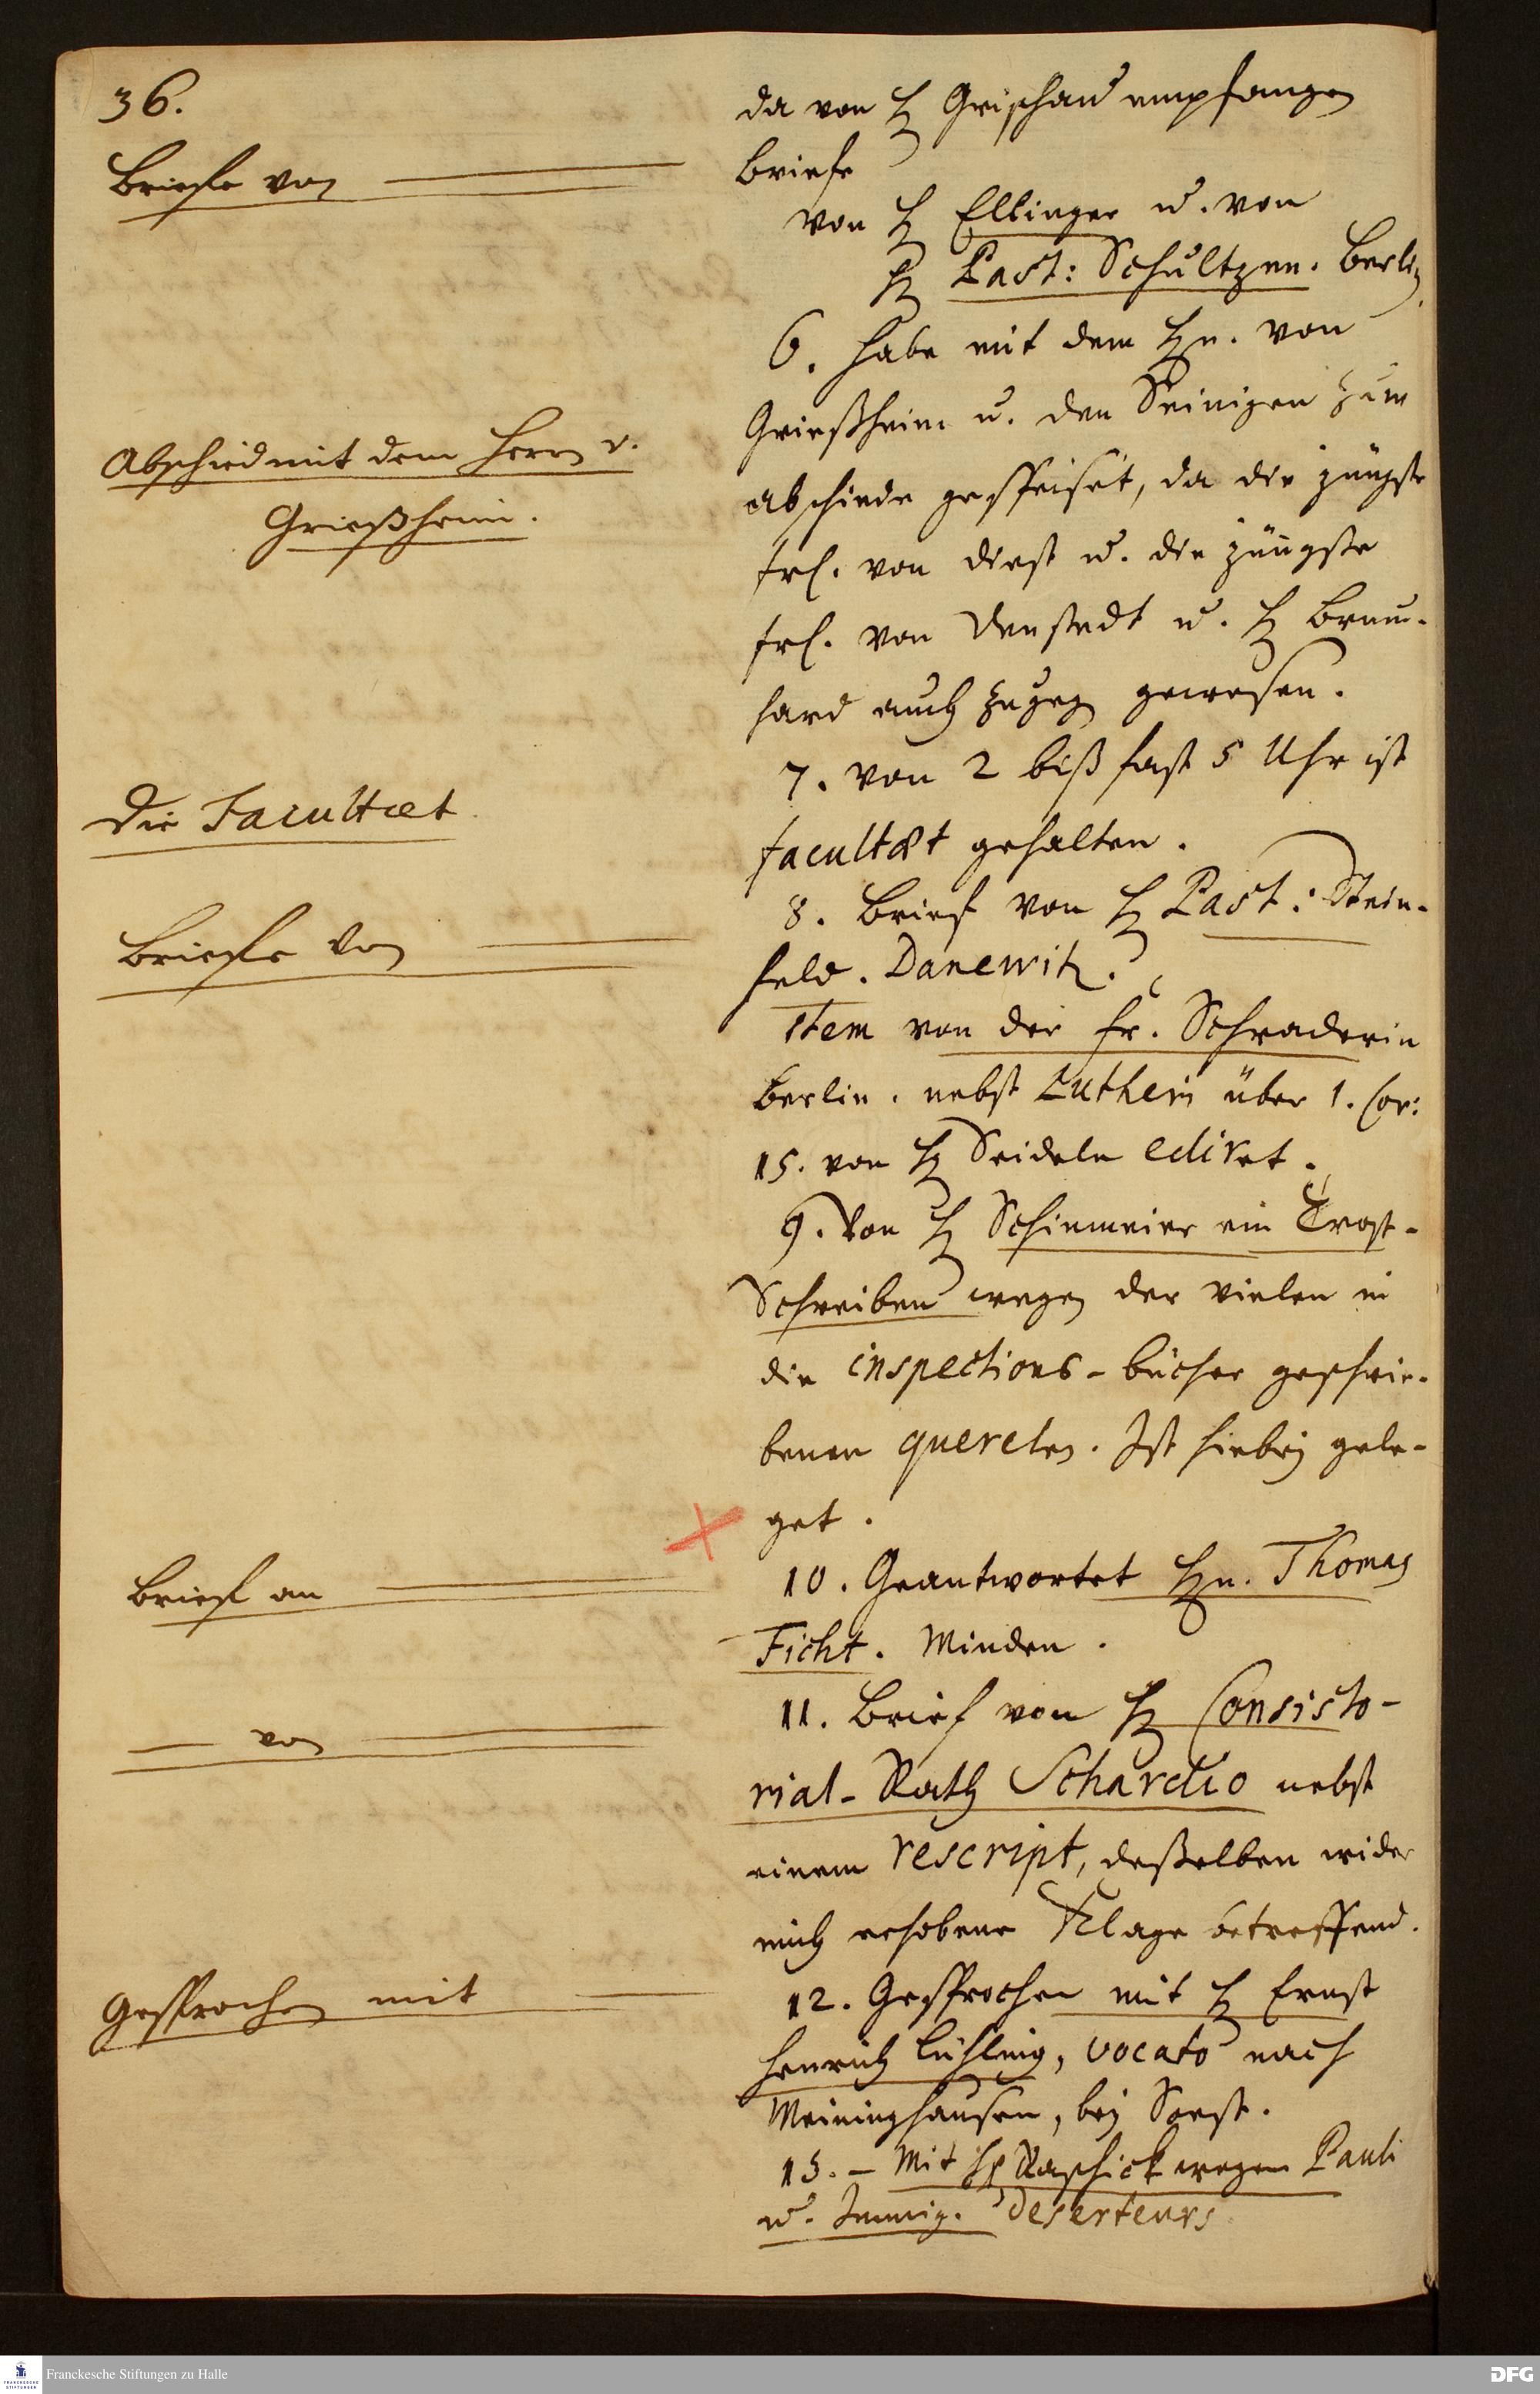 36.
Briefe von
Abschied mit dem Herrn v.
Grießheim.
Die Facultæt
Briefe von
Brief an
— von
Gesprochen mit
da von H. Grischau empfangen
Briefe
von H. Ellinger u. von
H. Past: Schultzen. Berlin
6. Habe mit dem Hn. von
Grießheim u. den Seinigen zum
abschiede gespeiset, da die jüngste
Frl. von Diest u. die jüngste
Frl. von Denstedt u. H. Braun-
hard auch zugegen gewesen.
7. Von 2 biß fast 5 Uhr ist
Facultæt gehalten.
8. Brief von H. Past: Stein-
feld. Danewitz.
Item von der Fr. Schraderin
Berlin. nebst Luthero über 1. Cor:
15. von H. Seideln ediret.
9. Von H. Schinmeier ein Trost-
Schreiben wegen der vielen in
die inspections-bücher geschrie-
benen querelen. Ist hiebey gele-
get.
10. Geantwortet Hn. Thomas
Ficht. Minden.
11. Brief von H. Consisto-
rial-Rath Schardio nebst
einem rescript, deßelben wider
mich erhobene Klage betreffend.
12. Gesprochen mit H. Ernst
Henrich Lühling, vocato nach
Meininghausen, bey Soest.
13. – Mit H. Raschick wegen Pauli
u. Deserteurs
Franckesche Stiftungen zu Halle
FRANCKESCHE STIFTUNGEN
DFG